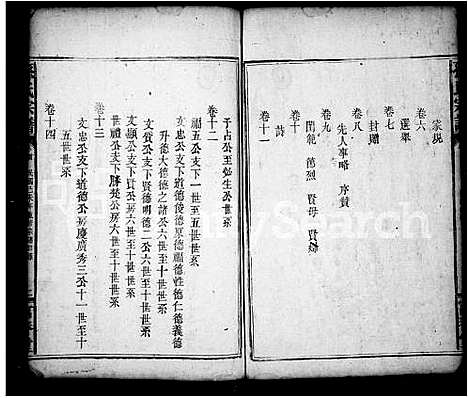 家規
卷六
選舉
卷七
封贈
卷八
先人事略 序贊
卷九
閨範 節烈 賢母 賢婦
卷十
詩
卷十一
于占公至弘生公世系
卷十二
福五公支下一世至五世世系
文忠公支下道德俊德厚德福德性德仁德義德
升德大德德之諸公六世至十世世系
文質公支下賢德明德二公六世至十世世系
文顯公支下貝公房六世至十世世系
世禮公支下勝楚公房六世至十世世系
卷十三
文忠公支下道德公房慶廣秀三公十一世至十
五世世系
卷十四